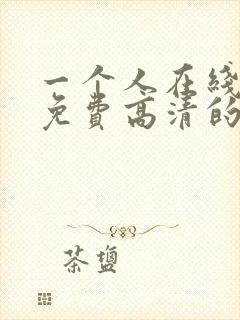 一个人在线
免费高清的
茶盬